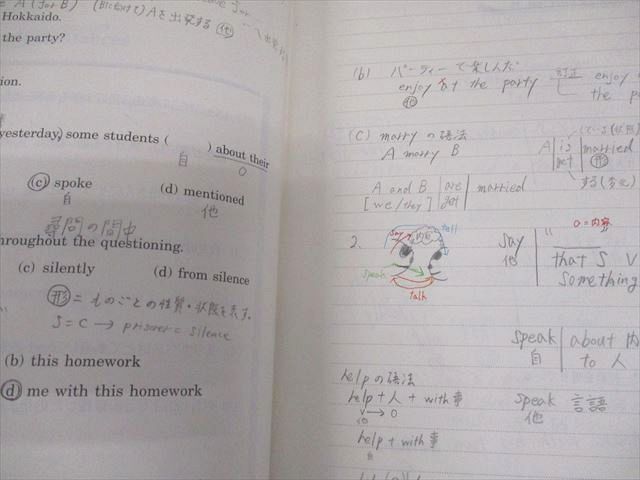 A (for B) (Bに向けて) Aを出発する 他
Hokkaido.
the party?
ion.
yesterday, some students ( ) about their
自 O
(c) spoke (d) mentioned
自 他
尋問の間中
hroughout the questioning.
(c) silently (d) from silence
形 = ものごとの性質・状態を表す.
S = C → prisoner = silence
(b) this homework
(d) me with this homework
(b) パーティーで楽しんだ
enjoy at the party 訂正 enjoy
他 the p
(C) marry の語法
A marry B A is married
get 形
する(
A and B are married
[we/they] get
2.
say 内容 tell
speak
talk
say " O=内容
他 that S V
something
speak about 内
自 to 人
speak 言語
他
helpの語法
help + 人 + with事
V → O
他
help + with事
自